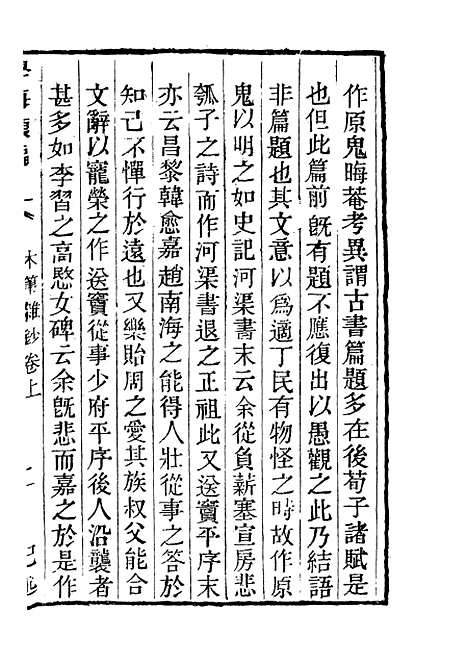 作原鬼晦菴考異謂古書篇題多在後荀子諸賦是
也但此篇前旣有題不應復出以愚觀之此乃結語
非篇題也其文意以爲適丁民有物怪之時故作原
鬼以明之如史記河渠書末云余從負薪塞宣房悲
瓠子之詩而作河渠書退之正祖此又送竇平序末
亦云昌黎韓愈嘉趙南海之能得人壯從事之答於
知己不憚行於遠也又樂貽周之愛其族叔父能合
文辭以寵榮之作送竇從事少府平序後人沿襲者
甚多如李習之高愍女碑云余旣悲而嘉之於是作
木筆雜鈔卷上